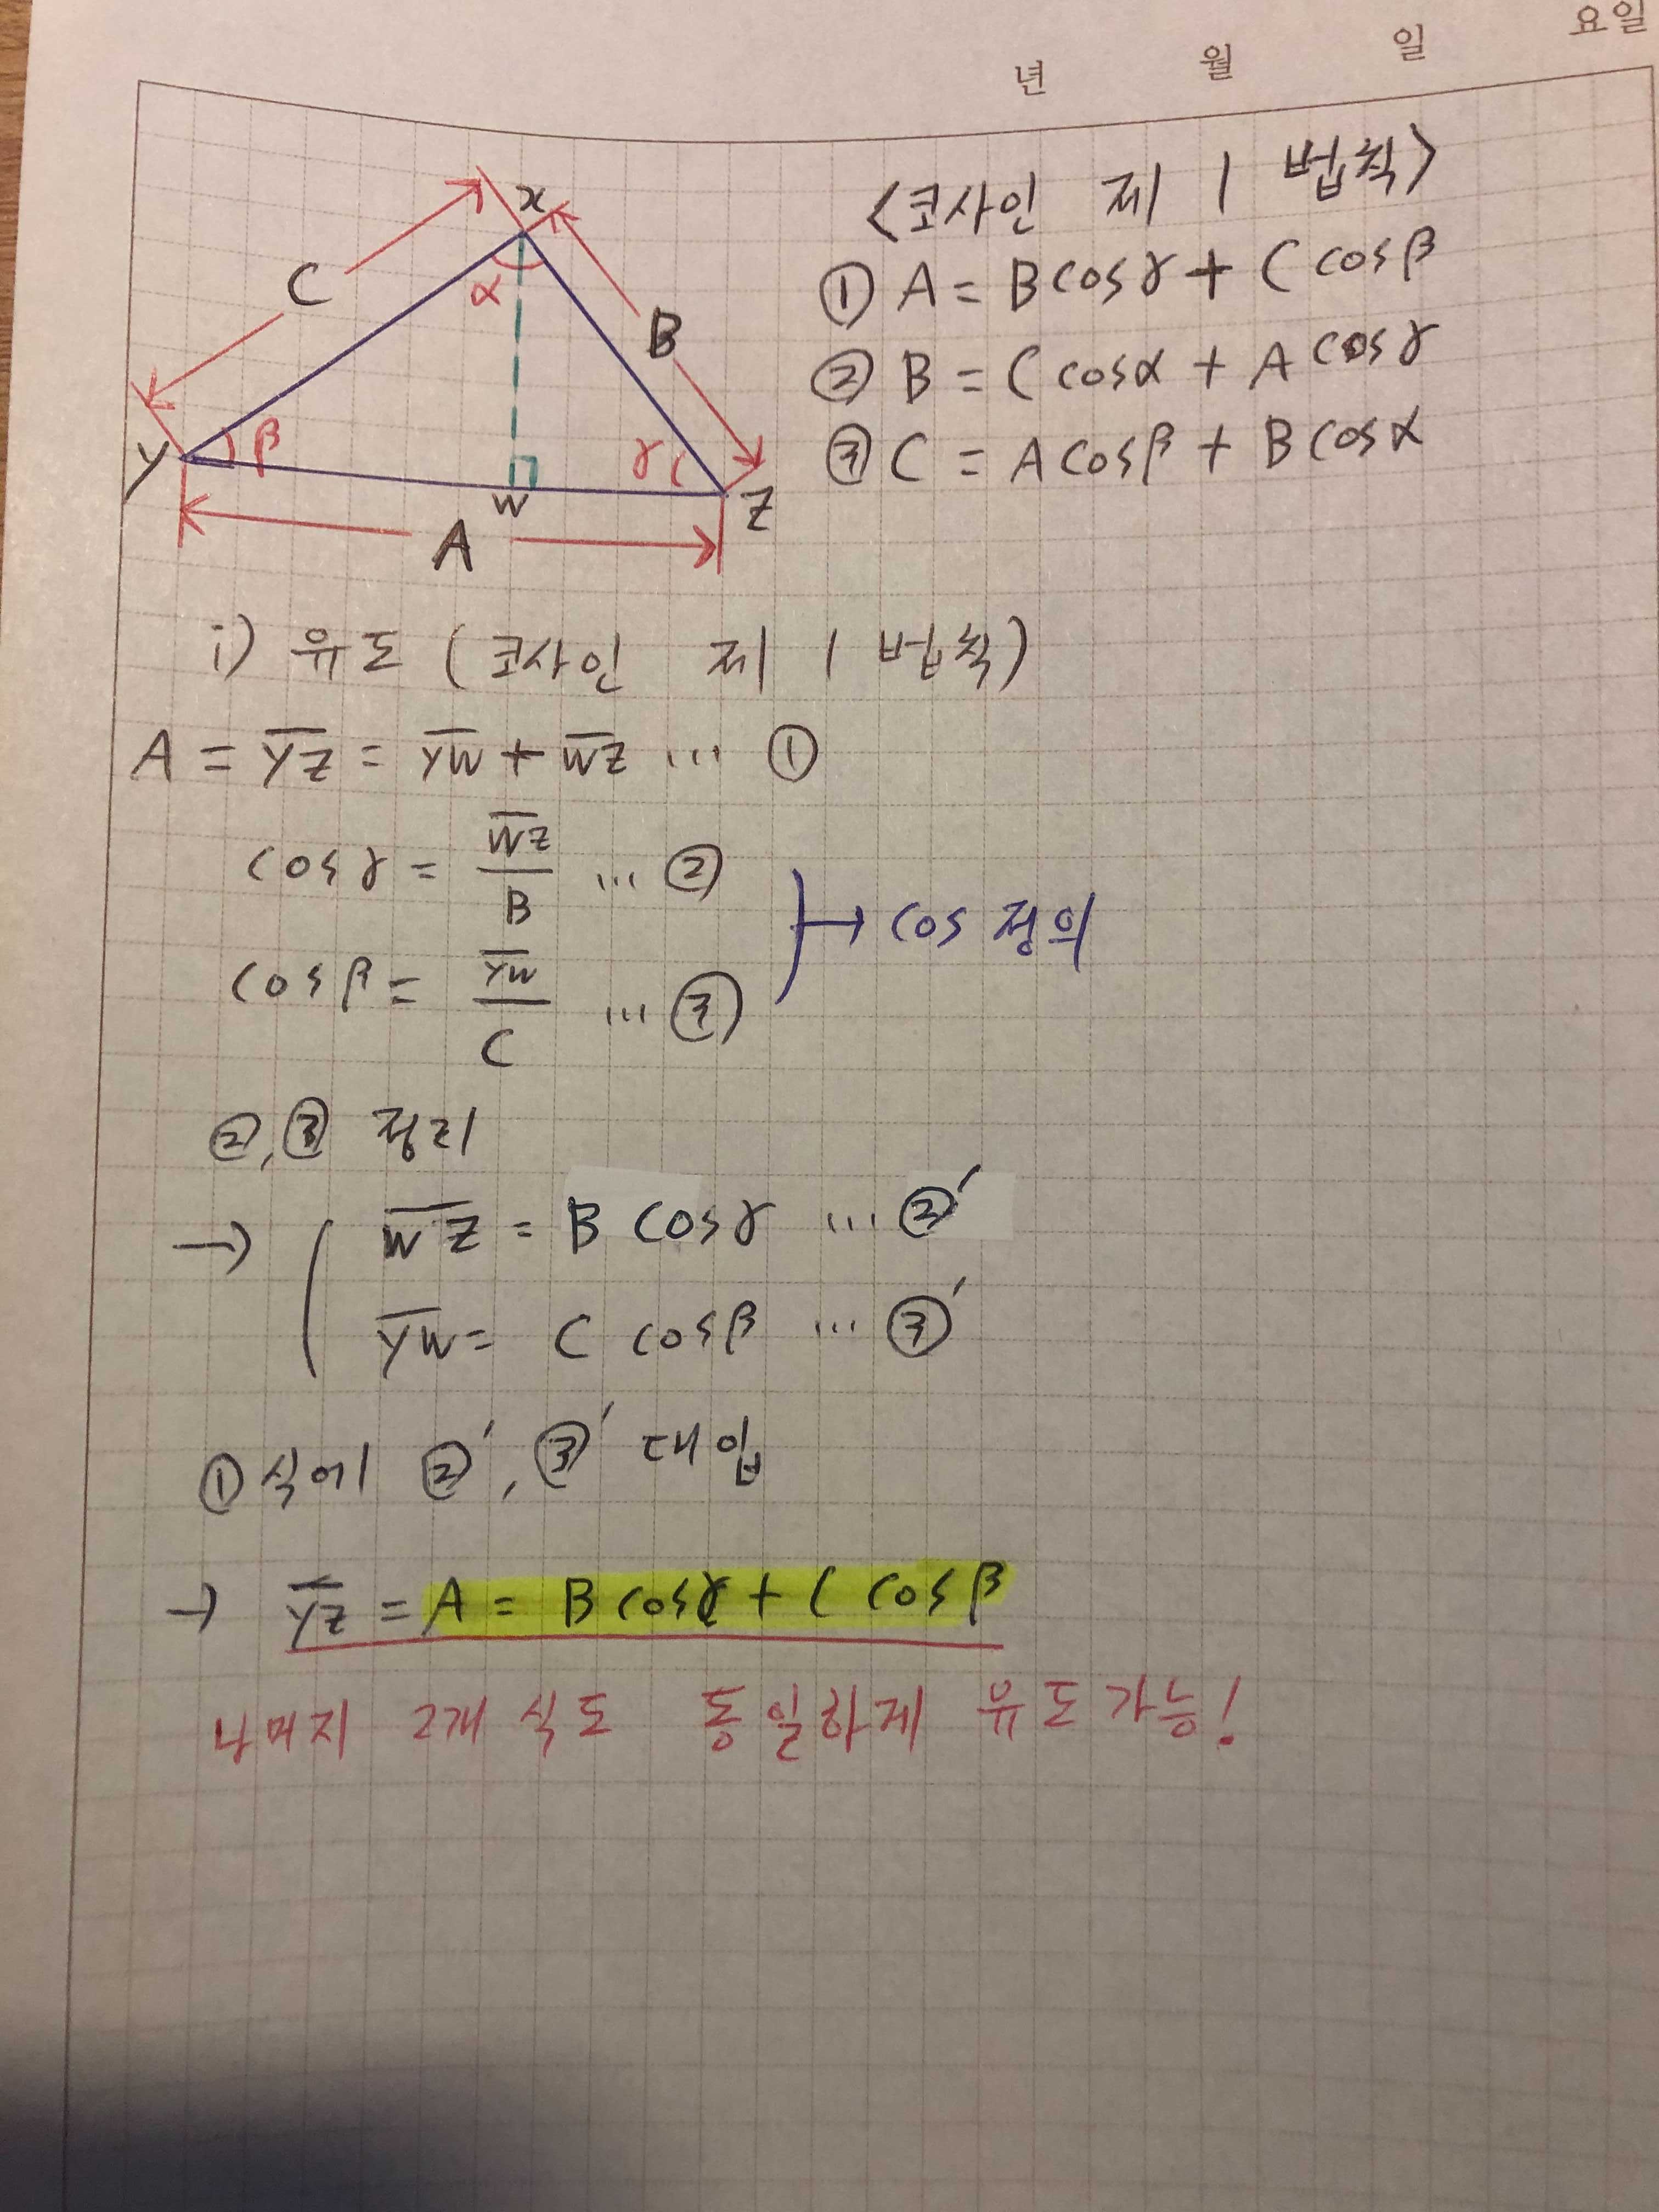 년 월 일 요일
x
C
α
B
Y
β
γ
w
Z
A
<코사인 제 1 법칙>
① A = B cosγ + C cosβ
② B = C cosα + A cosγ
③ C = A cosβ + B cosα
i) 유도 (코사인 제 1 법칙)
A = \overline{YZ} = \overline{YW} + \overline{WZ} … ①
cosγ = \frac{\overline{WZ}}{B} … ②
cosβ = \frac{\overline{YW}}{C} … ③
→ cos 정의
②, ③ 정리
→ \overline{WZ} = B cosγ … ②′
\overline{YW} = C cosβ … ③′
① 식에 ②′, ③′ 대입
→ \overline{YZ} = A = B cosγ + C cosβ
나머지 2개 식도 동일하게 유도가능!